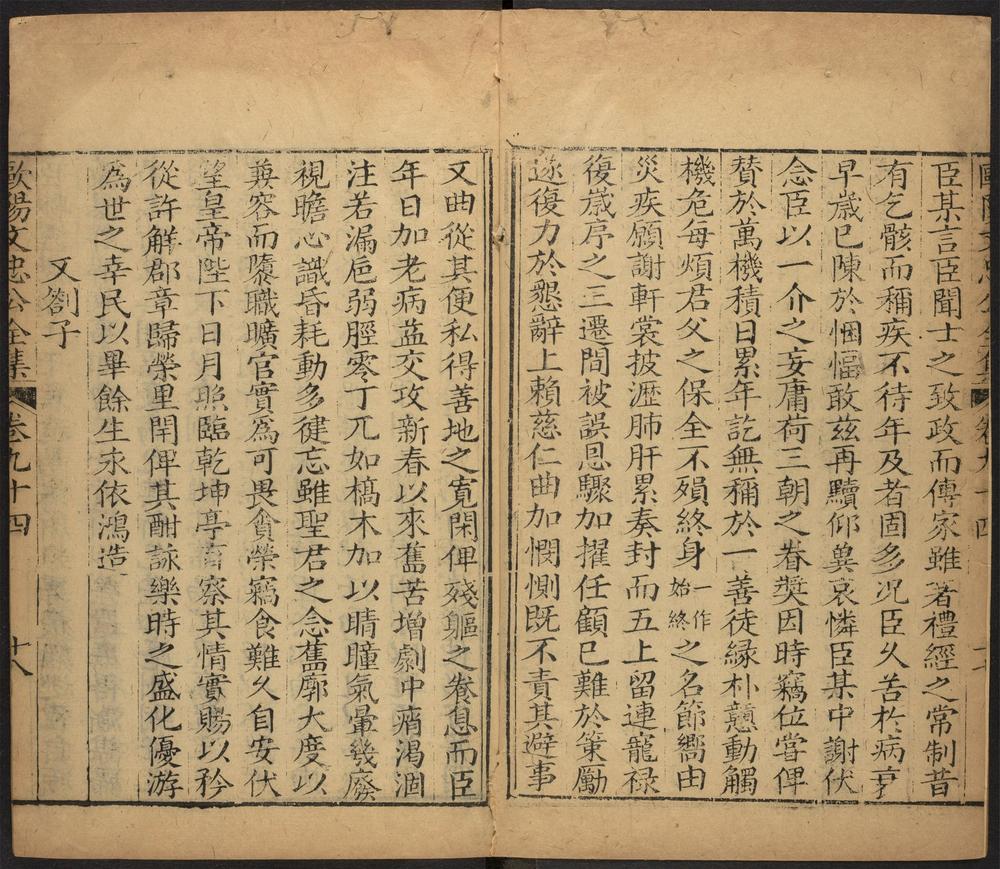 歐陽文忠公全集 卷九十四
臣某言臣聞士之致政而傳家雖著禮經之常制昔
有乞骸而稱疾不待年及者固多况臣久苦於病
早歲已陳於悃愊敢兹再黷仰兾哀憐臣某中謝伏
念臣以一介之妄庸荷三朝之眷奬因時竊位嘗俾
賛於萬機積日累年訖無稱於一善徒緣朴戅動觸
機危每煩君父之保全不殞終身一作始終之名節嚮由
災疾願謝軒裳披瀝肺肝累奏封而五上留連寵禄
復歲序之三遷間被誤恩驟加擢任顧已難於策勵
遂復力於懇辭上賴慈仁曲加憫惻既不責其避事
又曲從其便私得善地之寛閑俾殘軀之養息而臣
年日加老病益交攻新春以來舊苦增劇中痟渴涸
注若漏巵弱脛零丁兀如槁木加以睛瞳氣暈幾廢
視瞻心識昏耗動多徤忘雖聖君之念舊廓大度以
兼容而隳職曠官實為可畏貪榮竊食難久自安伏
望皇帝陛下日月照臨乾坤亭育察其情實賜以矜
從許解郡章歸榮里閈俾其酣詠樂時之盛化優游
為世之幸民以畢餘生永依鴻造
又劄子
歐陽文忠公全集 卷九十四 十八